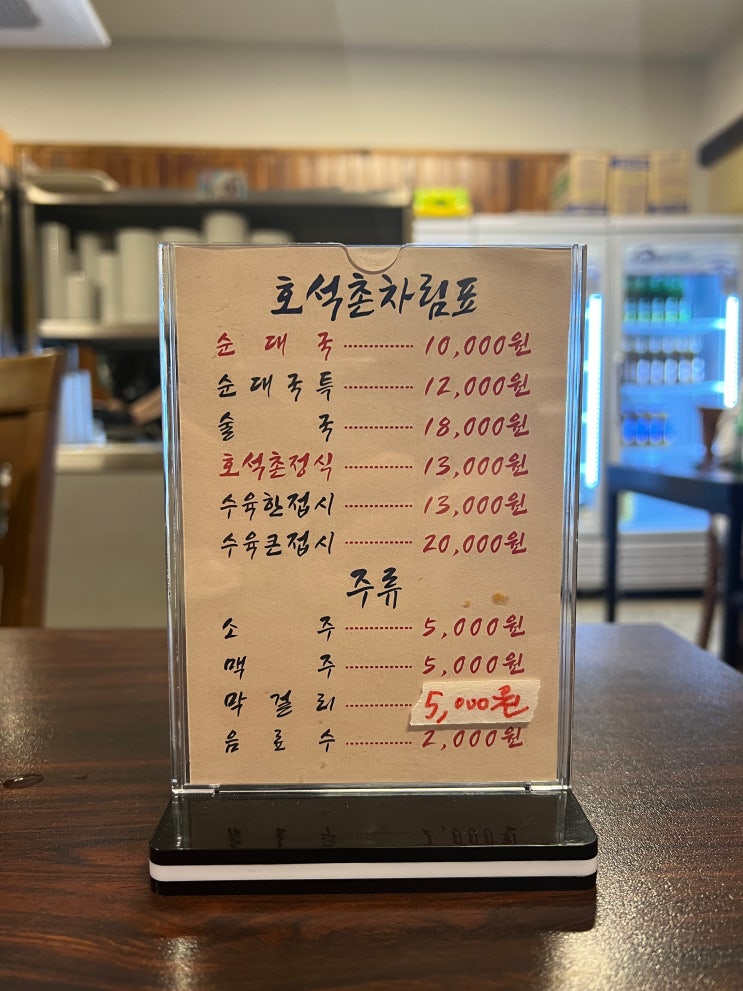 호석촌차림표
순 대 국 ---------- 10,000원
순대국특 ---------- 12,000원
술 국 ---------- 18,000원
호석촌정식 ---------- 13,000원
수육한접시 ---------- 13,000원
수육큰접시 ---------- 20,000원
주류
소 주 ---------- 5,000원
맥 주 ---------- 5,000원
막 걸 리 ---------- 5,000원
음 료 수 ---------- 2,000원